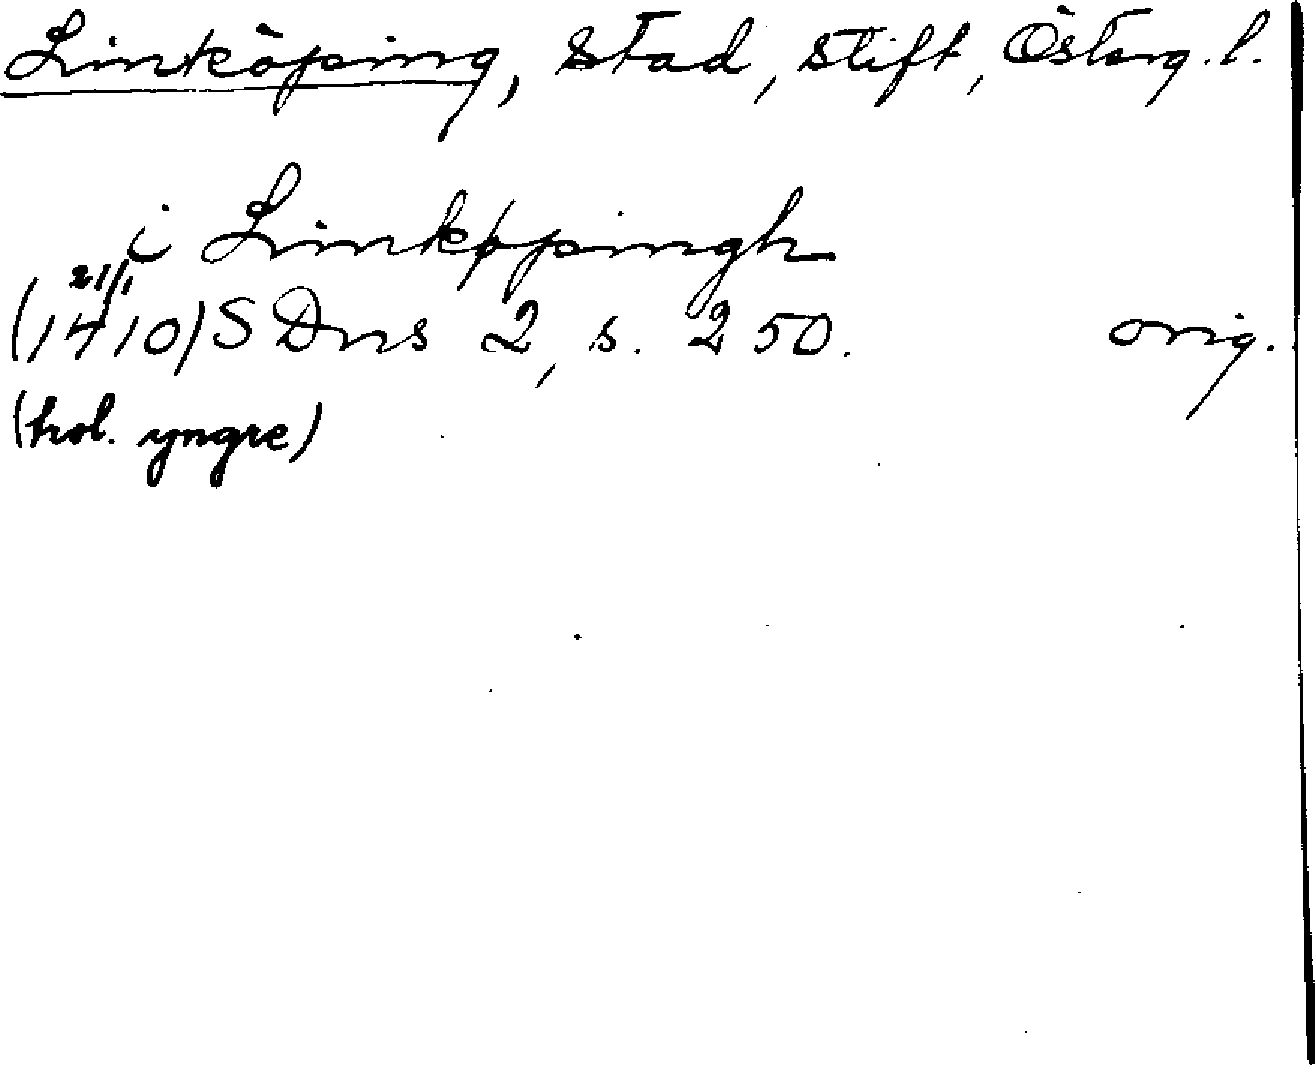 Linköping, Stad, Stift, Österg. l.
i Linkøpingh
(21/1 1410) SDns 2, s. 250. orig.
(hol. yngre)